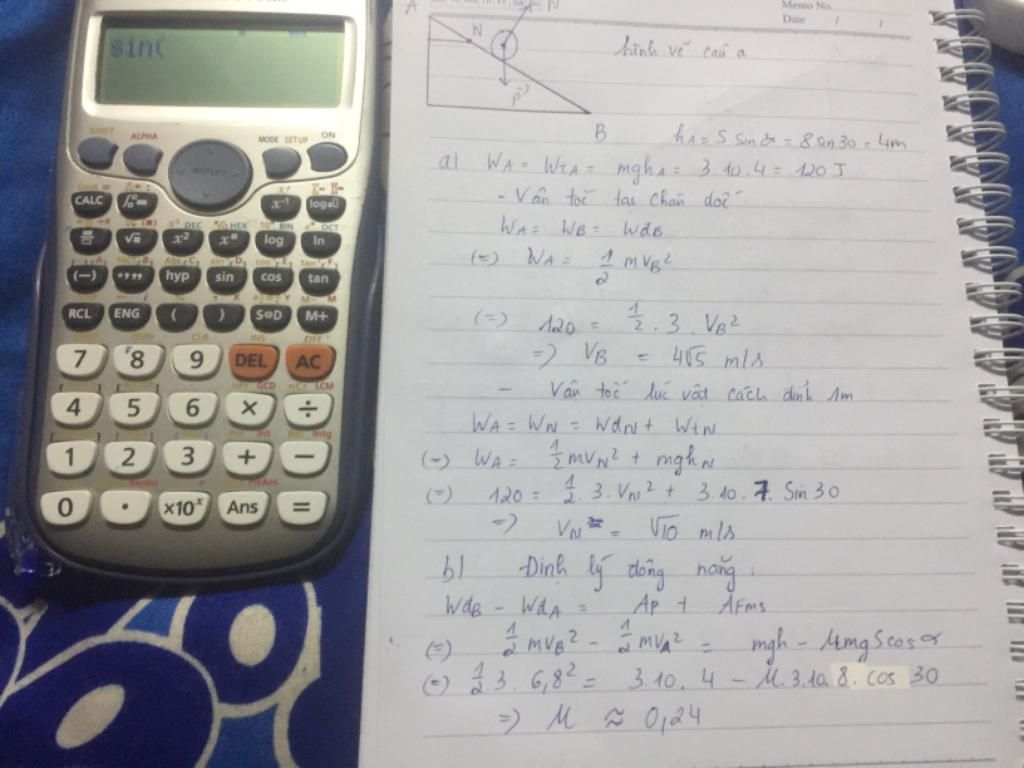 sin(
SHIFT ALPHA MODE SETUP ON
REPLAY
CALC
x² log ln
(−) hyp sin cos tan
RCL ENG ( ) S⇔D M+
7 8 9 DEL AC
4 5 6 × ÷
1 2 3 + −
0 . ×10ˣ Ans =
Memo No.
Date / /
A
N
N
hình vẽ câu a
P
B
hA = S sin α = 8 sin 30 = 4m
a) WA = WtA = mghA = 3.10.4 = 120 J
- Vân tốc tại chân dốc
WA = WB = WdB
(=) WA = 1/2 mVB²
(=) 120 = 1/2 . 3 . VB²
=) VB = 4√5 m/s
- Vân tốc lúc vật cách đỉnh 1m
WA = WN = WdN + WtN
(=) WA = 1/2 mVN² + mghN
(=) 120 = 1/2 . 3 . VN² + 3.10.7. Sin 30
=) VN = √10 m/s
b) Định lý động năng :
WdB - WdA = Ap + AFms
(=) 1/2 mVB² - 1/2 mVA² = mgh - μmgScosα
(=) 1/2 3 . 6,8² = 3.10.4 - μ.3.10.8.cos 30
=) μ ≈ 0,24